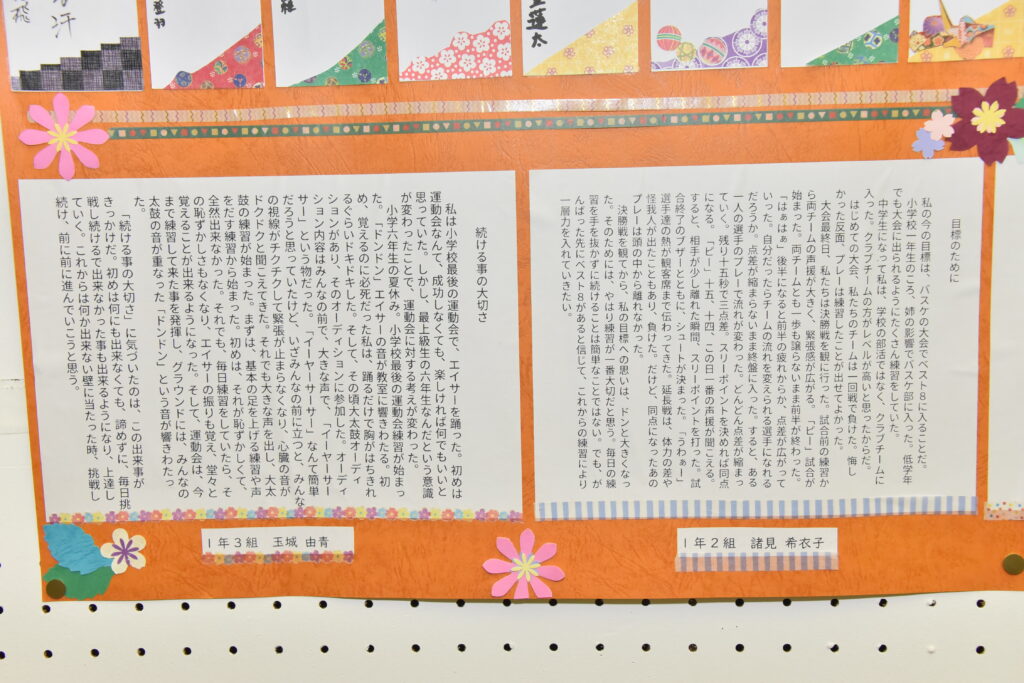 蓮太
目標のために
私の今の目標は、バスケの大会でベスト８に入ることだ。
小学校一年生のころ、姉の影響でバスケ部に入った。低学年
でも大会に出られるようにたくさん練習をしていた。
中学生になって私は、学校の部活ではなく、クラブチームに
入った。クラブチームの方がレベルが高いと思ったからだ。
はじめての大会、私たちのチームは一回戦で負けた。悔し
かった反面、プレーは練習したことが出せてよかった。
大会最終日、私たちは決勝戦を観に行った。試合前の練習か
ら両チームの声援が大きく、緊張感が広がる。「ピー」試合が
始まった。両チームとも一歩も譲らないまま前半が終わった。
「はぁはぁ」後半になると前半の疲れからか、点差が広がって
いった。自分だったらチームの流れを変えられる選手になれる
だろうか。点差が縮まらないまま終盤に入った。すると、ある
一人の選手のプレーで流れが変わった。どんどん点差が縮まっ
ていく。残り十五秒で三点差。スリーポイントを決めれば同点
になる。「ピー」十五、十四、この日一番の声援が聞こえる。
すると、相手が少し離れた瞬間、スリーポイントを打った。試
合終了のブザーとともに、シュートが決まった。「うわぁー」
選手達の熱が観客席まで伝わってきた。延長戦は、体力の差や
怪我人が出たこともあり、負けた。だけど、同点になったあの
プレーは頭の中から離れなかった。
決勝戦を観てから、私の目標への思いは、ドンと大きくなっ
た。そのためには、やはり練習が一番大切だと思う。毎日の練
習を手を抜かずに続けることは簡単なことではない。でも、が
んばった先にベスト８があると信じて、これからの練習により
一層力を入れていきたい。
１年２組　諸見　希衣子
続ける事の大切さ
私は小学校最後の運動会で、エイサーを踊った。初めは
運動会なんて、成功しなくても、楽しければ何でもいいと
思っていた。しかし、最上級生の六年生なんだという意識
が変わったことで、運動会に対する考えが変わった。
小学六年生の夏休み。小学校最後の運動会練習が始まっ
た。「ドンドン」エイサーの音が教室に響きわたる。初
め、覚えるのに必死だった私は、踊るだけで胸がはちきれ
るぐらいドキドキした。そして、その頃大太鼓オーディ
ションがあり、そのオーディションに参加した。オーディ
ション内容はみんなの前で、大きな声で、「イーヤーサー
サー」という物だった。「イーヤーサーサー」なんて簡単
だろうと思っていたけど、いざみんなの前に立つと、みんな
の視線がチクチクして緊張が止まらなくなり、心臓の音が
ドクドクと聞こえてきた。それでも大きな声を出し、大太
鼓の練習が始まった。まずは、基本の足を上げる練習や声
をだす練習から始まった。初めは、それが恥ずかしくて、
全然出来なかった。それでも、毎日練習をしていたら、そ
の恥ずかしさもなくなり、エイサーの振りも覚え、堂々と
覚えることが出来るようになった。そして、運動会は、今
まで練習して来た事を発揮し、グラウンドには、みんなの
太鼓の音が重なった「ドンドン」という音が響きわたっ
た。
「続ける事の大切さ」に気づいたのは、この出来事が
きっかけだ。初めは何にも出来なくても、諦めずに、毎日挑
戦し続けるで出来なかった事も出来るようになり、上達し
ていく。これからは何か出来ない壁に当たった時、挑戦し
続け、前に前に進んでいこうと思う。
１年３組　玉城　由青